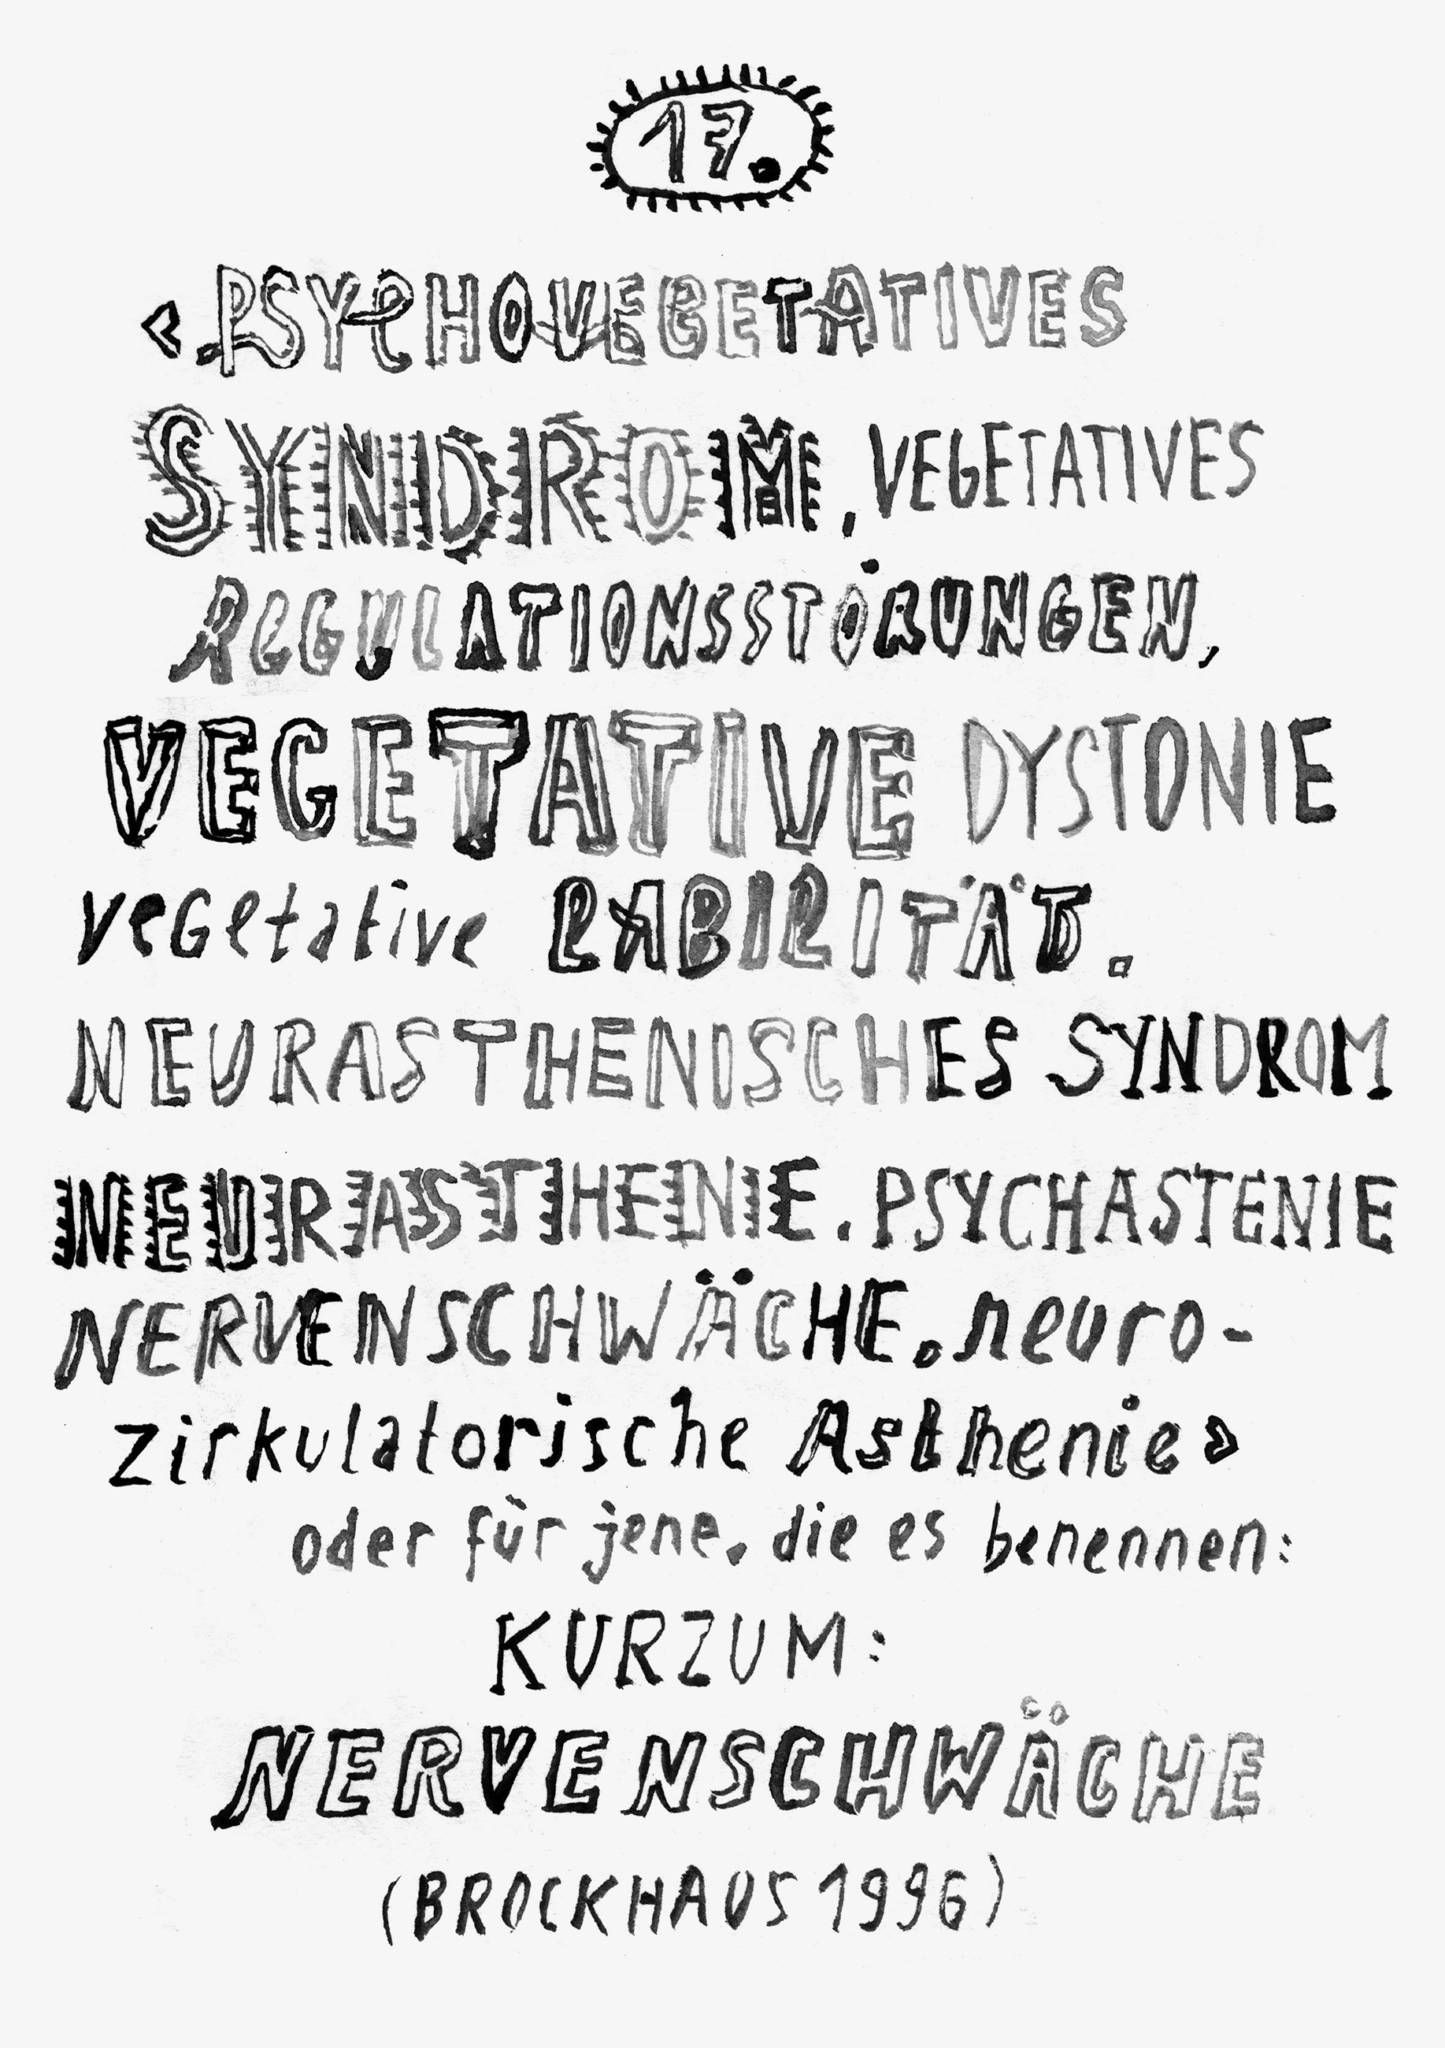 17.
‹.PSYCHOVEGETATIVES
SYNDROM, VEGETATIVES
REGULATIONSSTÖRUNGEN,
VEGETATIVE DYSTONIE
vegetative LABILITÄT.
NEURASTHENISCHES SYNDROM
NEURASTHENIE. PSYCHASTENIE
NERVENSCHWÄCHE. neuro-
zirkulatorische Asthenie»
oder für jene. die es benennen:
KURZUM:
NERVENSCHWÄCHE
(BROCKHAUS 1996)